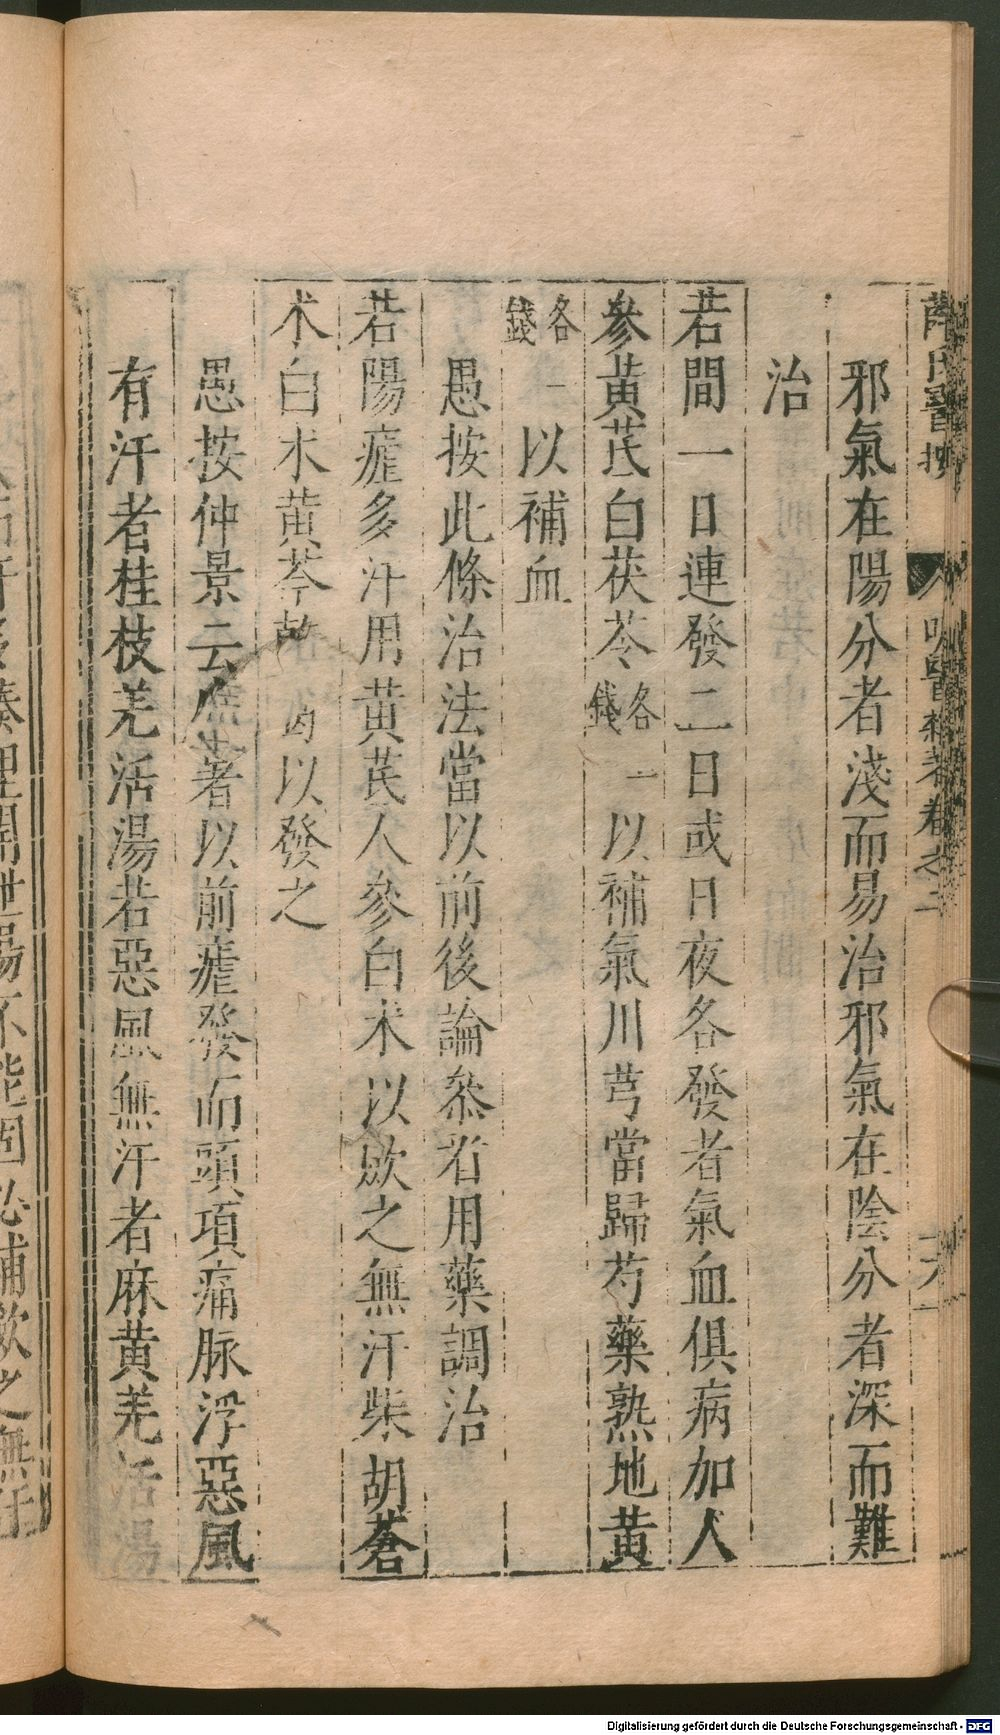 薛氏醫按 明醫雜著卷之二
邪氣在陽分者淺而易治邪氣在陰分者深而難
治
若間一日連發二日或日夜各發者氣血俱病加人
參黃芪白茯苓各一錢以補氣川芎當歸芍藥熟地黃
各一錢以補血
愚按此條治法當以前後論叅看用藥調治
若陽瘧多汗用黃芪人參白朮以歛之無汗柴胡蒼
朮白朮黃芩葛以發之
愚按仲景云瘧著以前瘧發而頭項痛脉浮惡風
有汗者桂枝羌活湯若惡風無汗者麻黃羌活湯
腠理開泄陽不能固必補歛之無汗
Digitalisierung gefördert durch die Deutsche Forschungsgemeinschaft - DFG